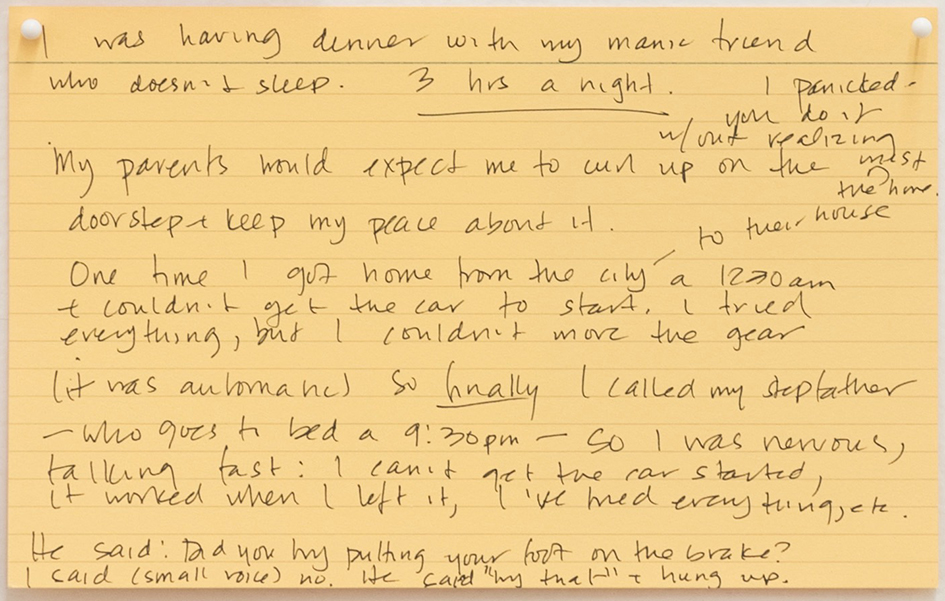 I was having dinner with my manic friend
who doesn't sleep. 3 hrs a night. I panicked -
you do it
w/out realizing
My parents would expect me to curl up on the
the time.
doorstep + keep my peace about it.
to their house
One time I got home from the city a 12:30am
+ couldn't get the car to start. I tried
everything, but I couldn't move the gear
(it was automatic) so finally I called my stepfather
- who goes to bed a 9:30pm - so I was nervous,
talking fast: I can't get the car started,
it worked when I left it, I've tried everything, etc.
He said: Did you try putting your foot on the brake?
I said (small voice) no. He said "try that" + hung up.